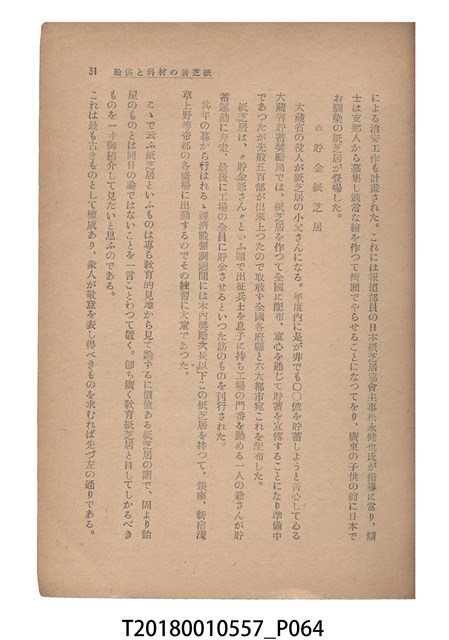 紙芝居の材料と供給
31
による治安工作も計畫された。これには報道部員の日本紙芝居協會主事松永健也氏が指導に當り、辯
士は支那人から募集し適當な繪を作つて街頭でやらせることになつてをり、廣東の子供の前に日本で
お馴染の紙芝居が登場した。
貯金紙芝居
大藏省の役人が紙芝居の小父さんになる。年度內に是が非でも〇〇億を貯蓄しようと苦心してゐる
大藏省貯蓄奬勵局では、紙芝居を作つて全國に配布、童心を通じて貯蓄を宣傳することになり準備中
であつたが先般五百部が出來上つたので取敢す全國各府縣と六大都市宛これを配布した。
紙芝居は、〃貯金爺さん〃といふ題で出征兵士を息子に持ち工場の門番を勤める一人の爺さんが貯
蓄運動に奔走、最後に工場の全員に貯金させるといつた筋のものを刊行された。
其年の暮から行はれる經濟戰强調週間には木內奬勵次長以下この紙芝居を持つて、銀座、新宿淺
草上野等帝都の各盛場に出動するのでその練習に大童であつた。
こゝで云ふ紙芝居といふものは專ら敎育的見地から見て論ずるに價値ある紙芝居の謂で、固より飴
屋のものとは同日の論ではないことを一言ことわつて置く。卽ち廣く敎育紙芝居と目してしかるべき
ものを一寸御紹介して見たいと思ふのである。
これは最も古きものとして權威あり、衆人が敬意を表し得べきものを求むれば先づ左の通りである。
T20180010557_P064